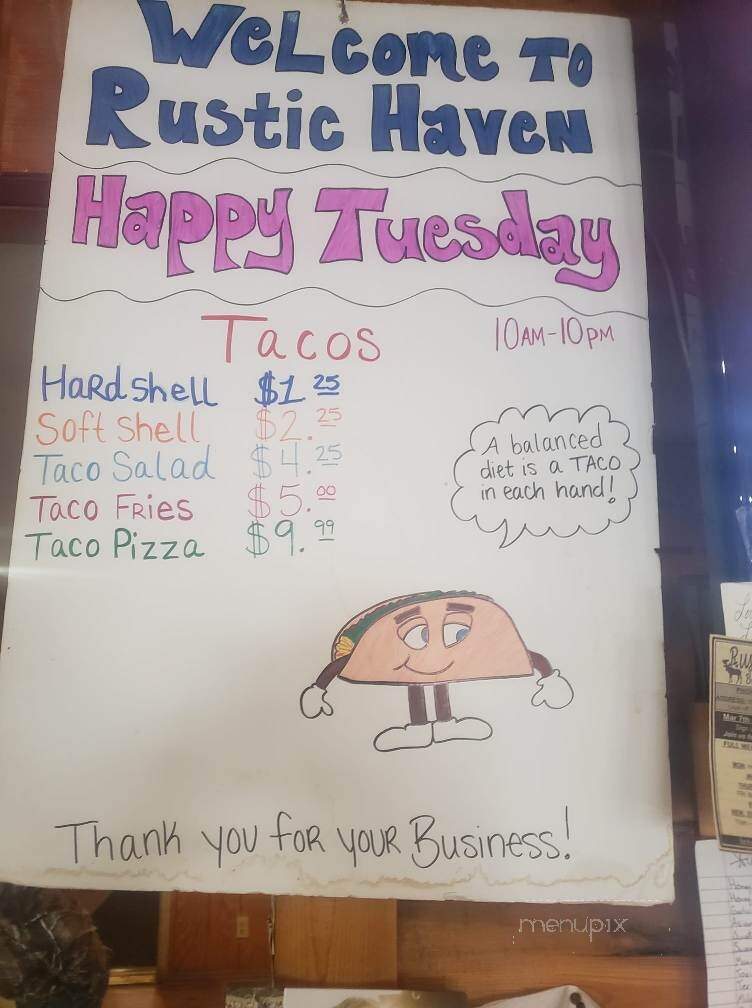 WeLcome To
Rustic Haven
Happy Tuesday
Tacos 10AM-10PM
Hardshell $1 25
Soft Shell $2.25
Taco Salad $4.25
Taco Fries $5.00
Taco Pizza $9.99
A balanced
diet is a TACO
in each hand!
Thank you for your Business!
menupix